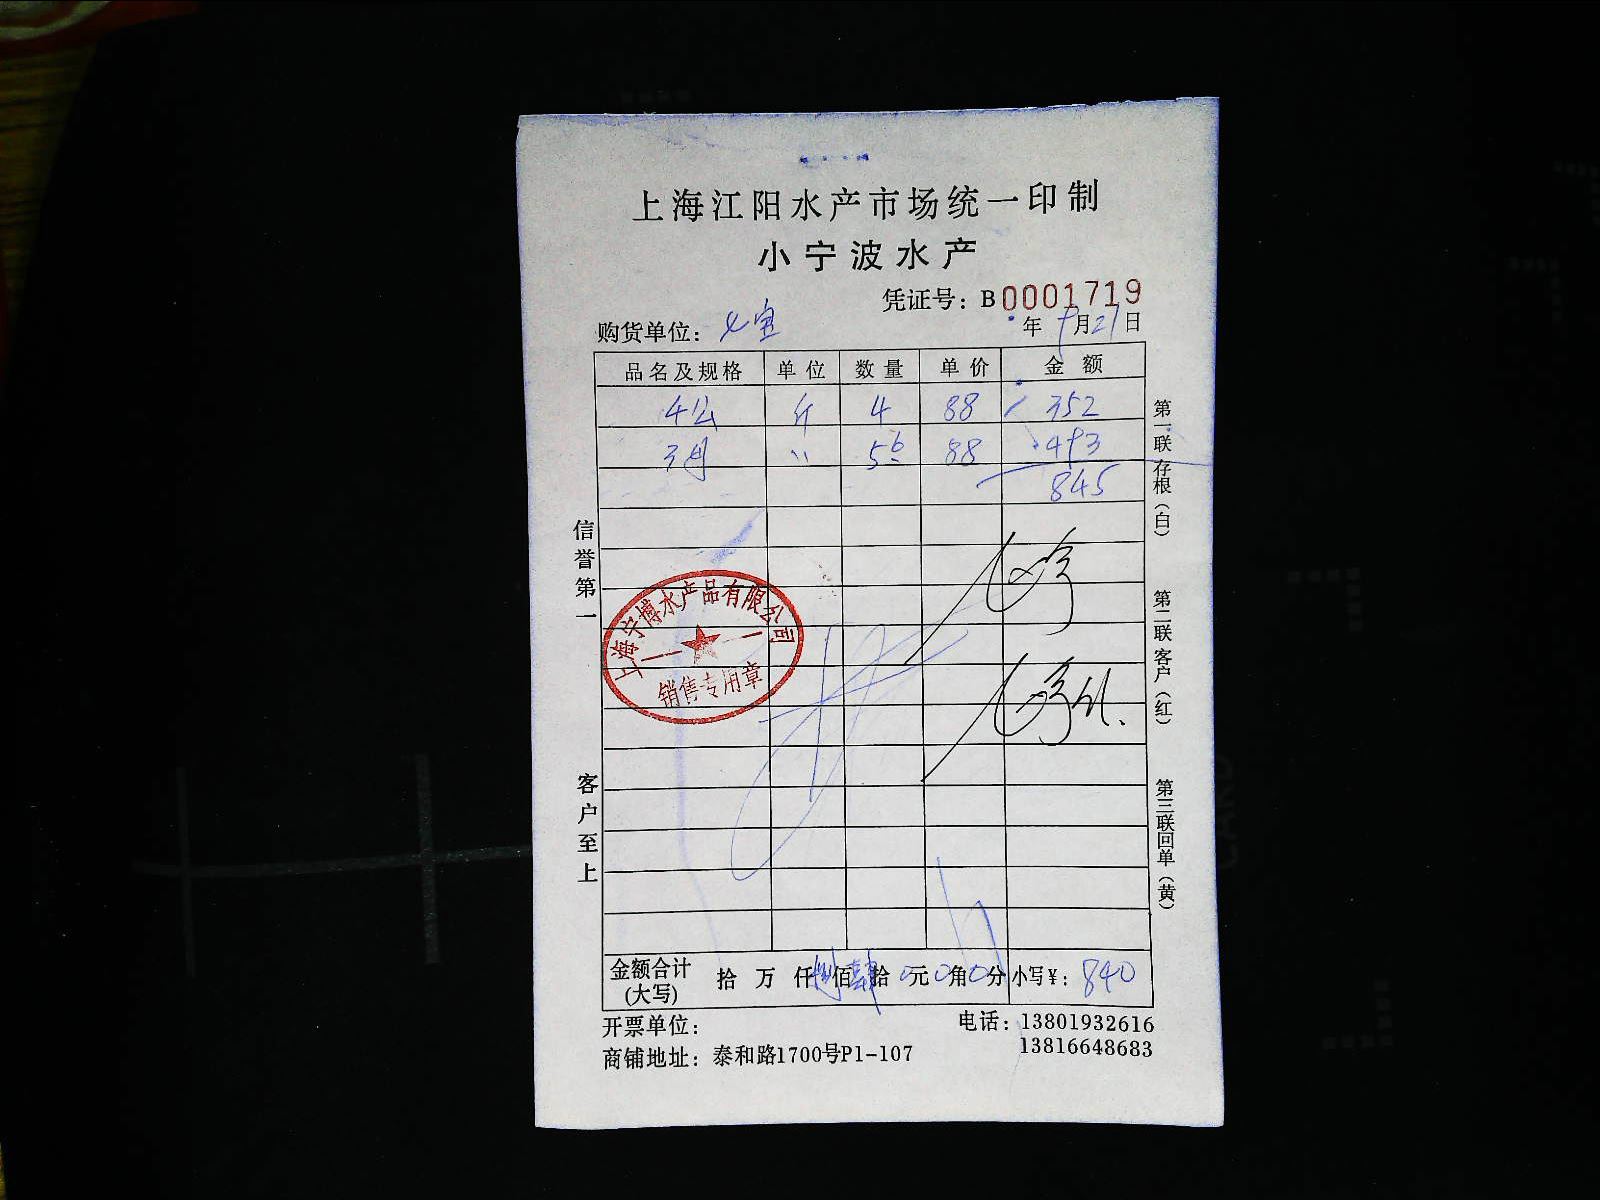 上海江阳水产市场统一印制
小宁波水产
凭证号：B0001719
购货单位：七宝
年9月21日
品名及规格 单位 数量 单价 金额
4公 斤 4 88 352
3母 〃 5.6 88 493
845
信誉第一
客户至上
第一联存根（白）
第二联客户（红）
第三联回单（黄）
上海宁博水产品有限公司
销售专用章
金额合计(大写) 拾万仟捌佰肆拾0元0角0分 小写¥：840
开票单位：
电话：13801932616
13816648683
商铺地址：泰和路1700号P1-107